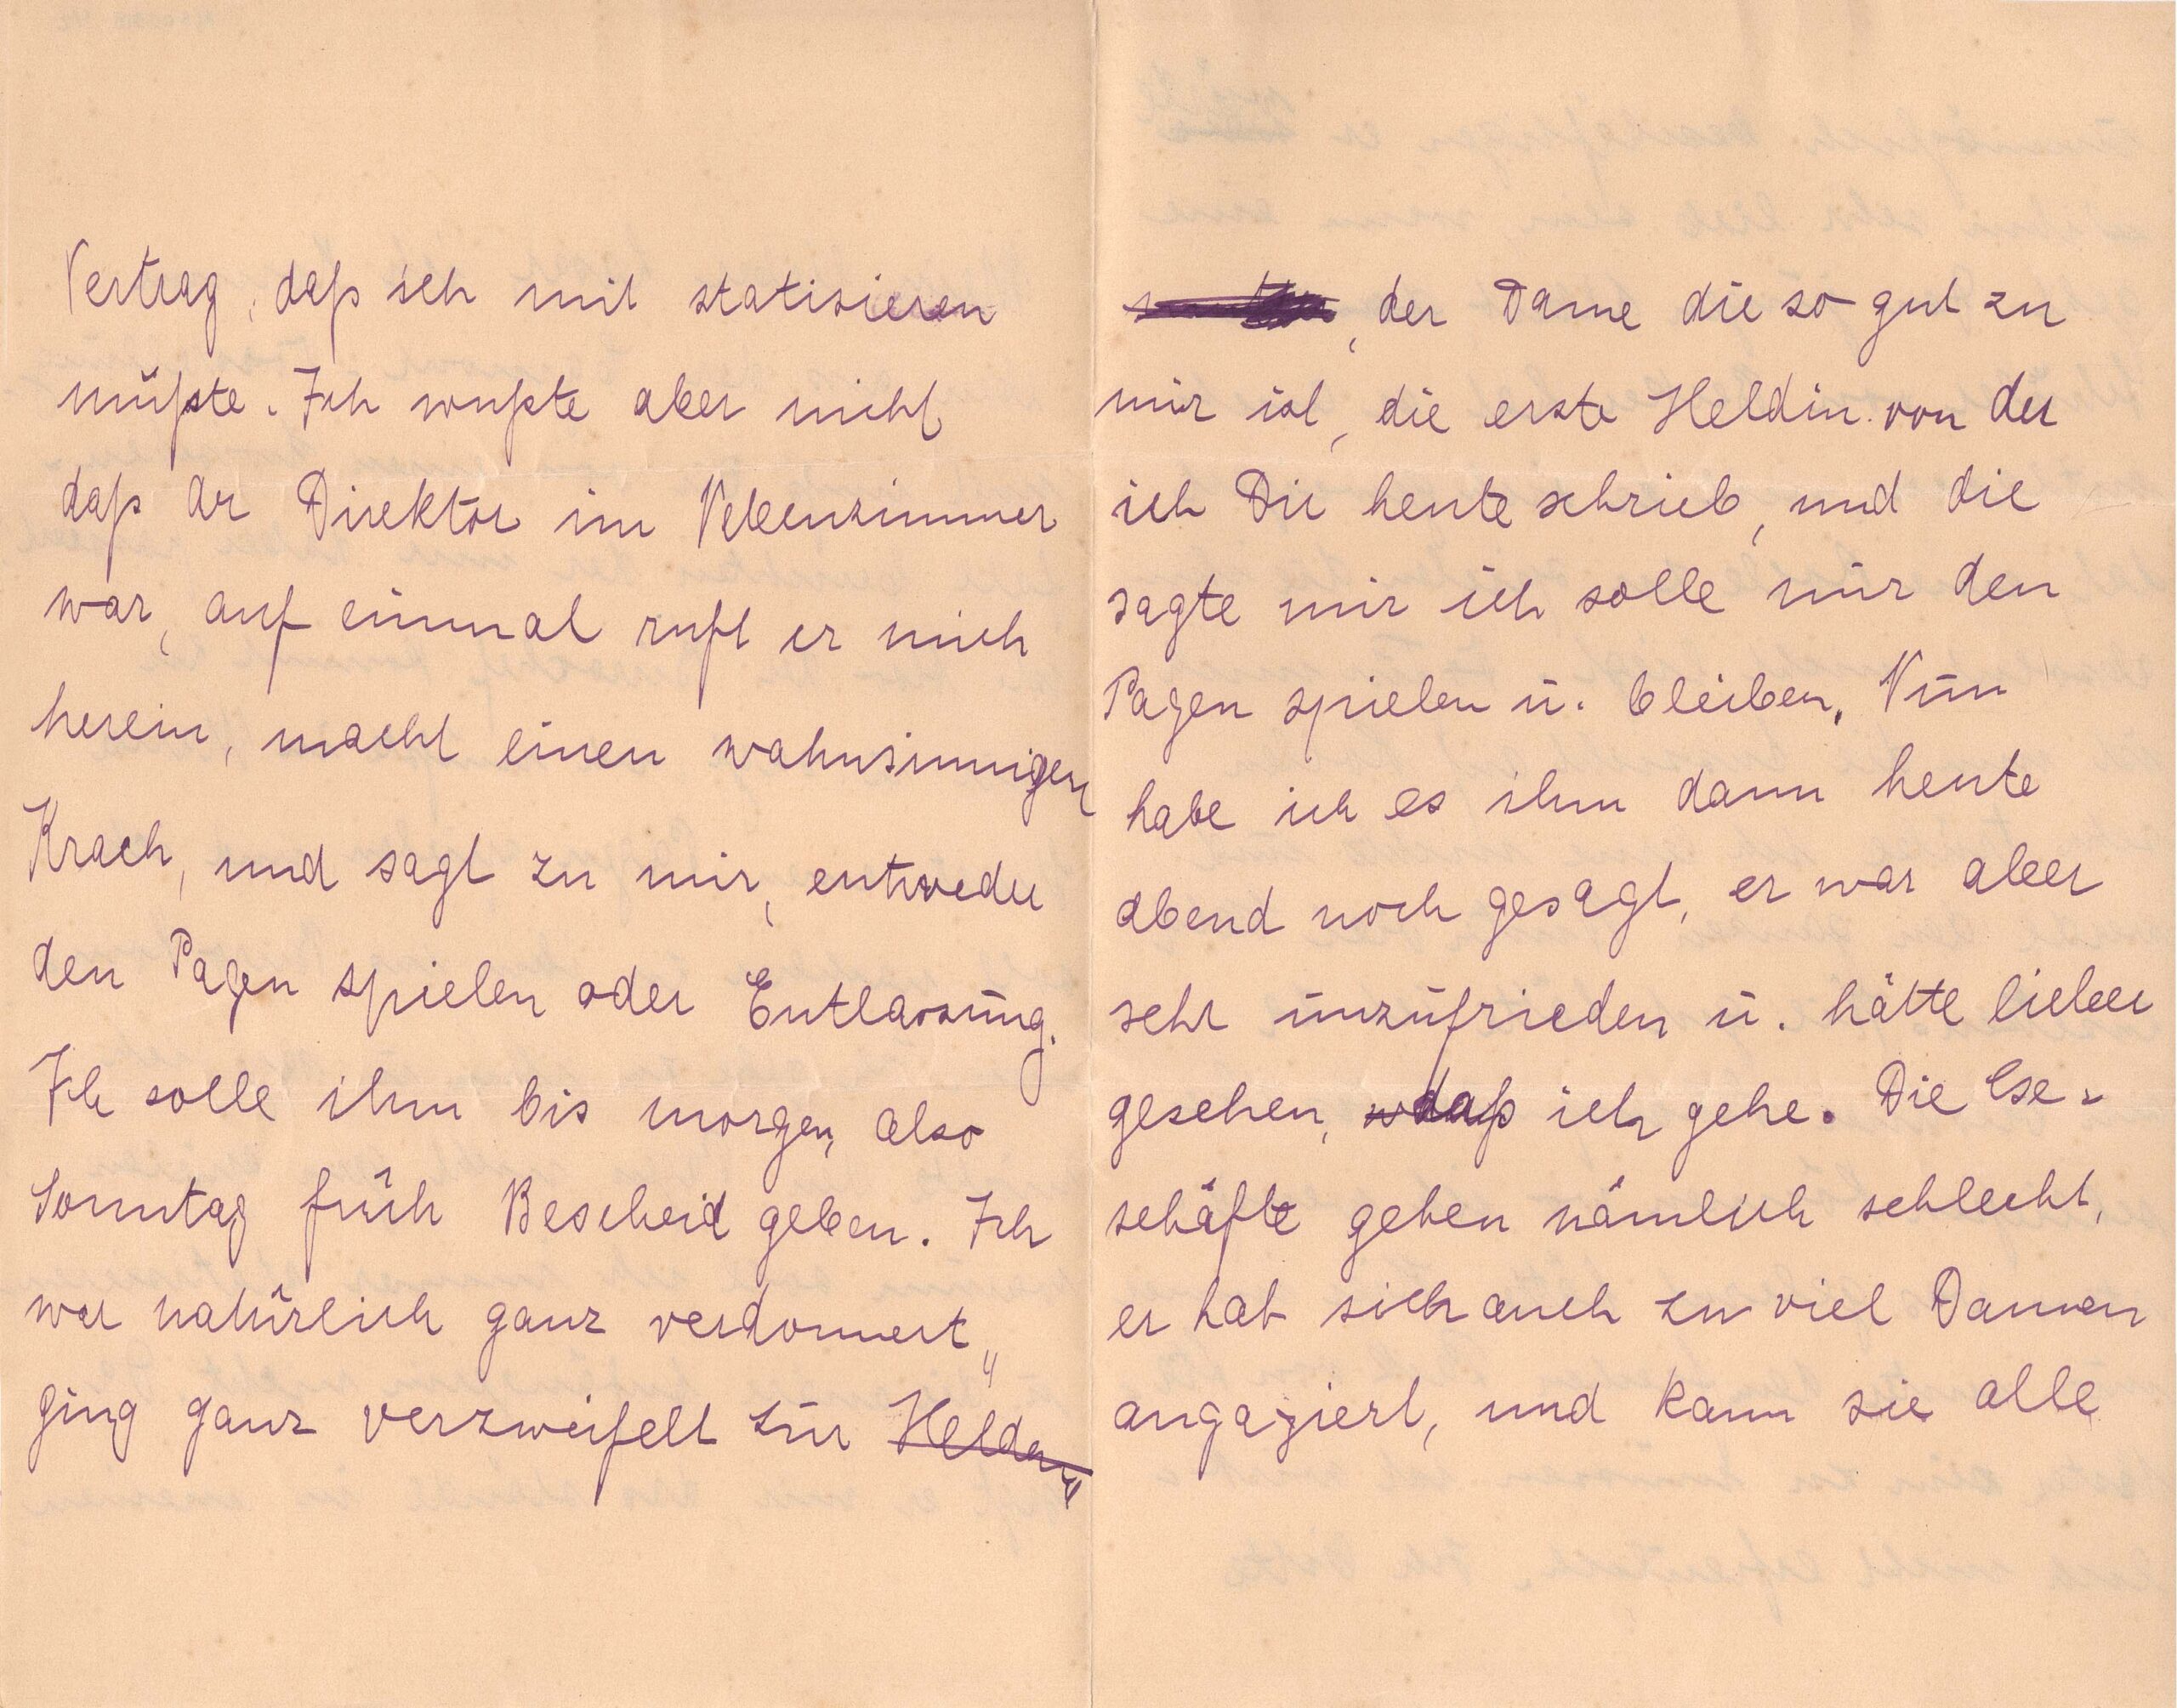 Vertrag, daß ich mit statisieren
müßte. Ich wußte aber nicht
daß der Direktor im Nebenzimmer
war, auf einmal ruft er mich
herein, macht einen wahnsinnigen
Krach, und sagt zu mir, entweder
den Pagen spielen oder Entlassung.
Ich solle ihm bis morgen, also
Sonntag früh Bescheid geben. Ich
war natürlich ganz verdonnert,
ging ganz verzweifelt zur Helden
, der Dame die so gut zu
mir ist, die erste Heldin von der
ich Dir heute schrieb, und die
sagte mir ich solle mir den
Pagen spielen u. bleiben. Nun
habe ich es ihm dann heute
abend noch gesagt, er war aber
sehr unzufrieden u. hätte lieber
gesehen, daß ich gehe. Die Ge-
schäfte gehen nämlich schlecht,
er hat sich auch zu viel Damen
angagiert, und kann sie alle